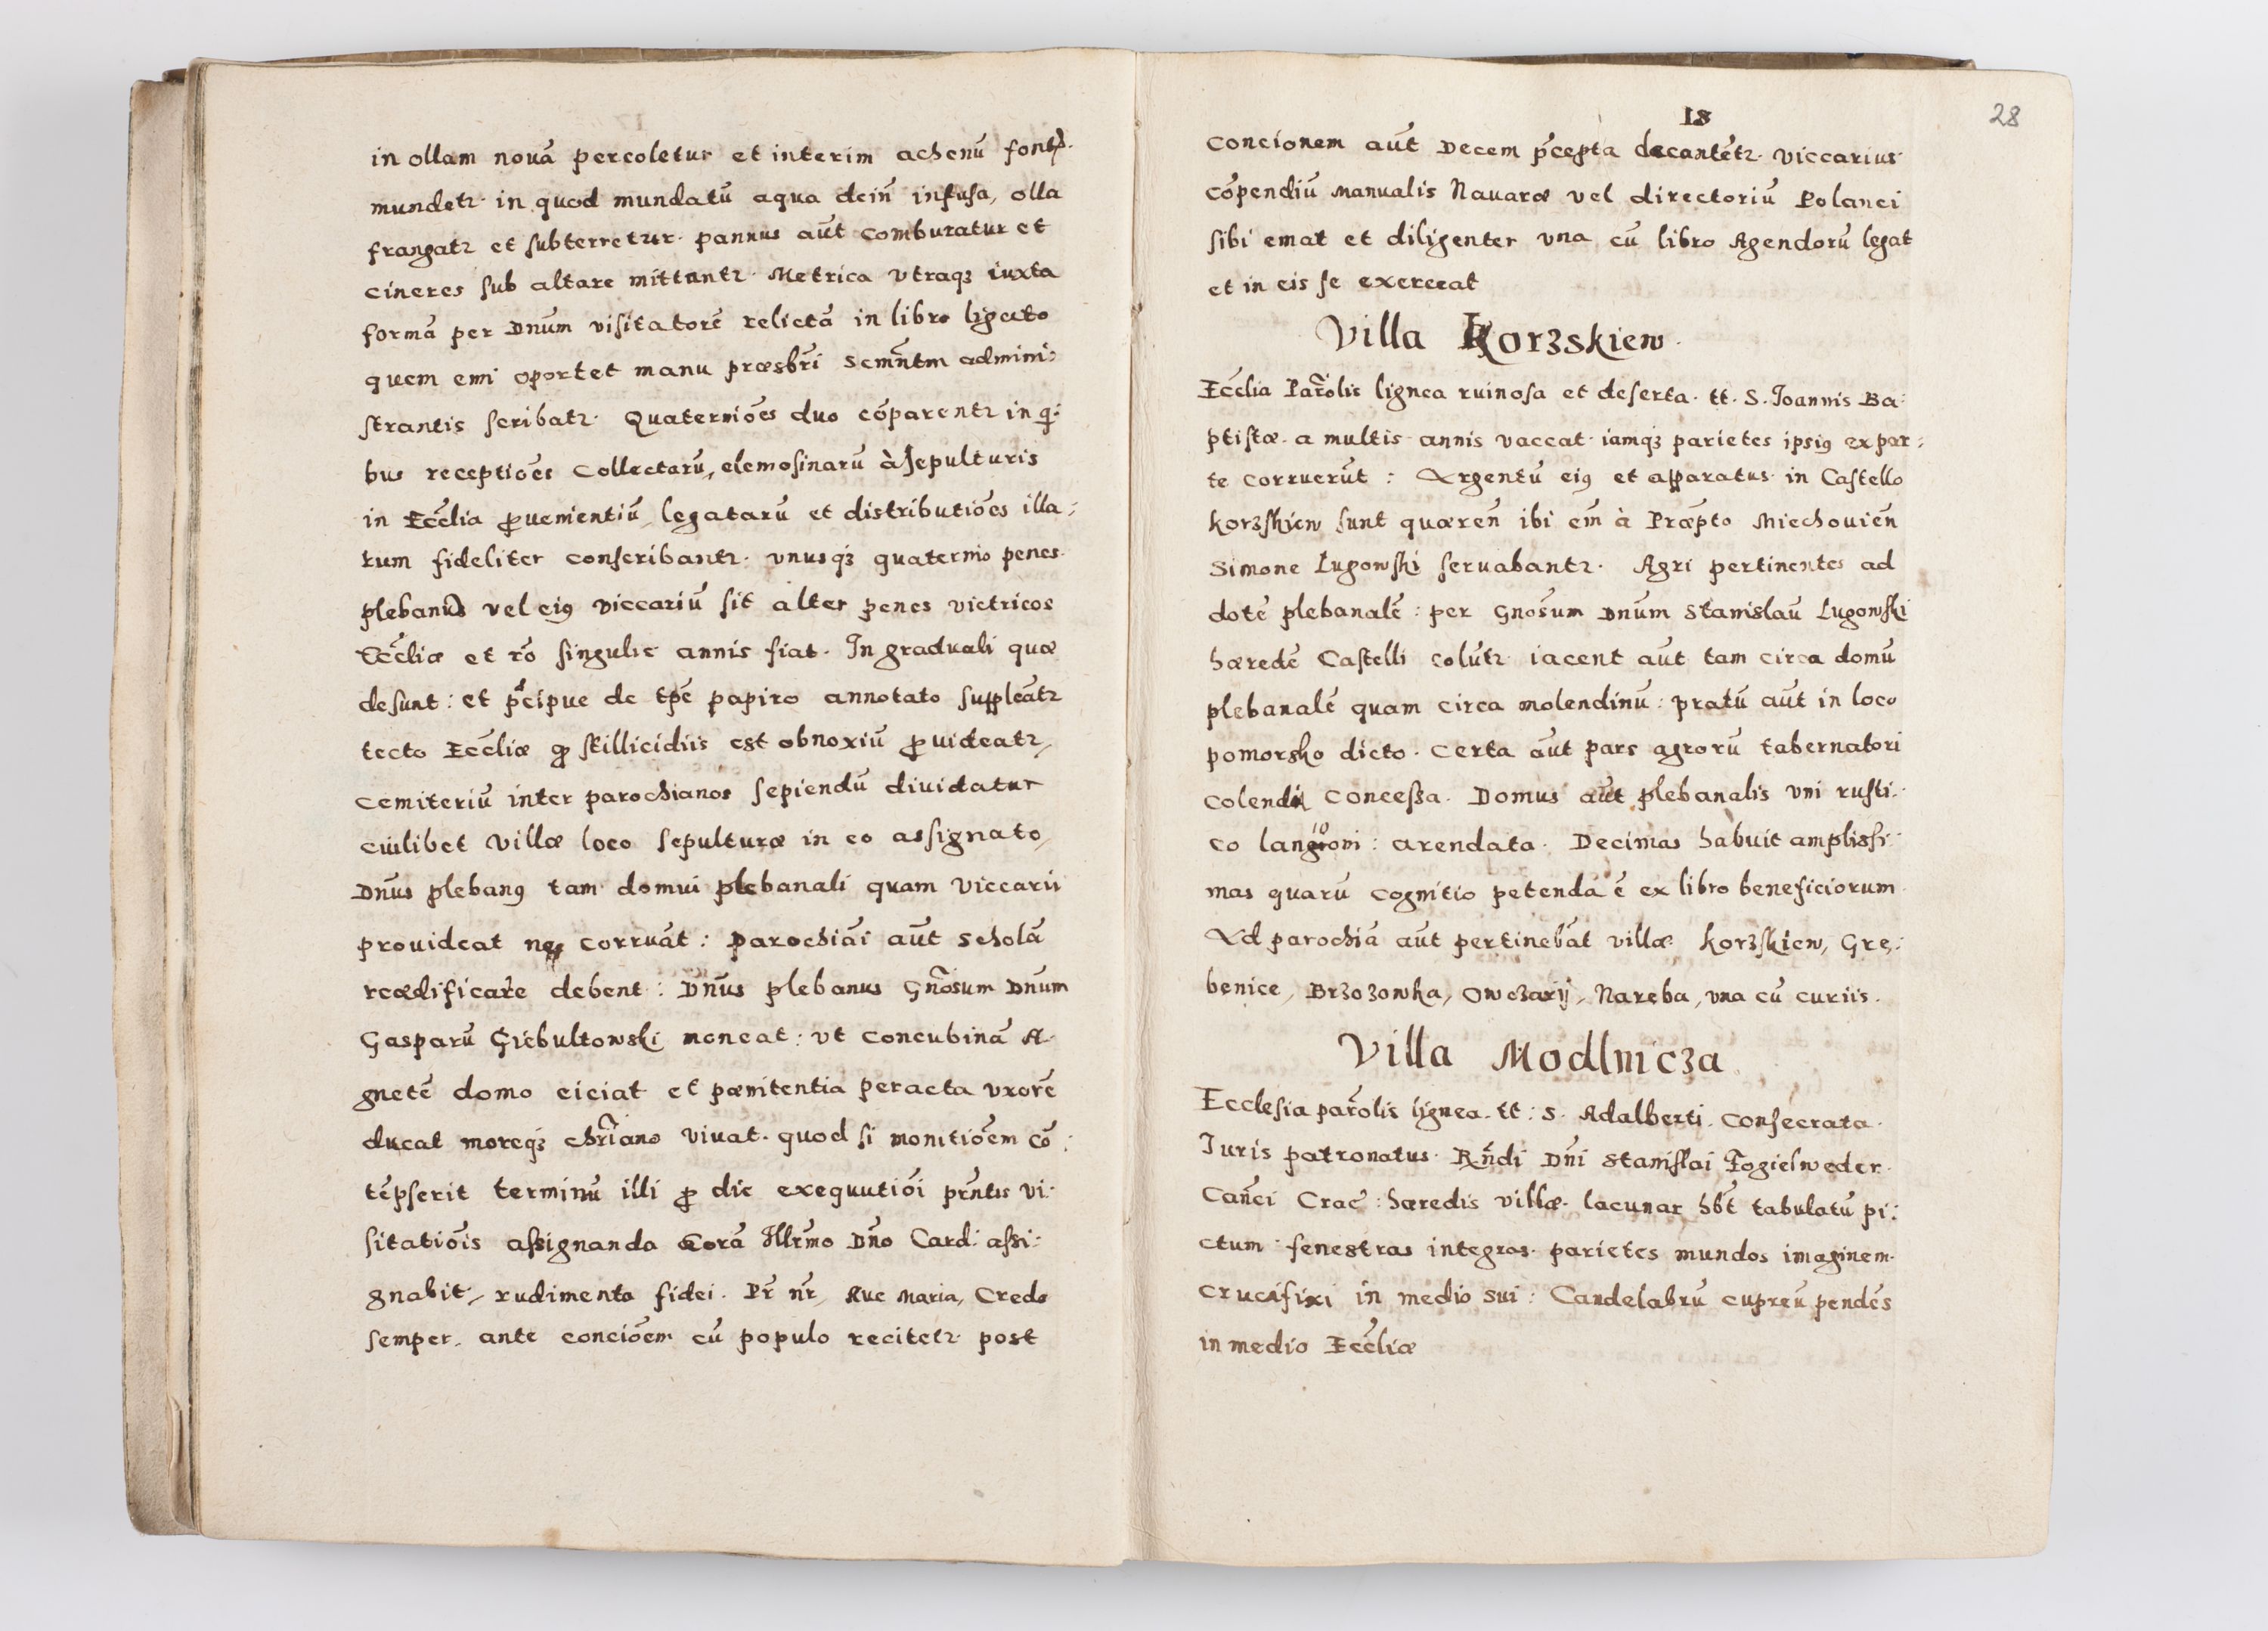 in ollam nouā percoletur et interim achenū fontis.
mundetr in quod mundatū aqua dein̄ infusa, olla
frangatr et subterretur. pannus aūt comburatur et
cineres sub altare mittantr. Metrica vtraqꝫ iuxta
formā per Dnūm visitatorē relictā in libro ligato
quem emi oportet manu præsbrī Semn̄tm admini:
strantis scribatr. Quaterniōes duo cōparentr in qi:
bus receptiōes Collectarū, elemosinarū à sepulturis
in Eccl̄ia ꝓuenientiū, legatarū et distributiōes illa:
rum fideliter conscribantr. vnusqꝫ quaternio penes
plebanū vel eiꝰ viccariū sit alter penes victricos
Eccl̄iæ et rō singulis annis fiat. In graduali quæ
desunt: et p̄cipue de tpē papiro annotato suppleātr
tecto Eccl̄iæ ꝙ stillicidiis est obnoxiū ꝓuideatr,
Cemiteriū inter parochianos sepiendū diuidatur
cuilibet villæ loco sepulturæ in eo assignato,
Dnūs plebanꝰ tam domui plebanali quam viccarii
prouideat ne corruāt: parochiāi aūt scholā
reædificare debent: Dnūs plebanus Gnōsum Dnum
Gasparū Giebultowski moneat: vt Concubinā A
gnetē domo eiciat et pœnitentia peracta vxorē
ducat moreqꝫ chrīano viuat. quod si monitiōem cō:
tēpserit terminū illi ꝓ die exequutiōi prn̄tis vi:
sitatiōis assignanda Corā Illrm̄o Dnō Card: assi:
gnabit, rudimenta fidei. Pr̄ nr̄, Aue Maria, Credo
semper. ante conciōem cū populo recitetr post
18
28
Concionem aūt Decem p̄cepta decantētr. Viccarius
cōpendiū Manualis Nauaræ vel directoriū Polanci
sibi emat et diligenter vna cū libro Agendorū legat
et in eis se exerceat
Villa Korzskiew.
Eccl̄ia Parōlis lignea ruinosa et deserta. tt. S. Joannis Ba:
ptistæ. a multis annis vaccat iamqꝫ parietes ipsiꝰ ex par:
te corruerūt: Argentū eiꝰ et apparatus in Castello
korzskiew sunt quæren̄ ibi em̄ à Præp̄to Miechouien̄
Simone Lugowski seruabantr. Agri pertinentes ad
dotē plebanalē: per Gnōsum Dnūm Stanislaū Lugowski
hæredē Castelli colūtr iacent aūt tam circa domū
plebanalē quam circa molendinū: pratū aūt in loco
pomorsko dicto. Certa aūt pars agrorū tabernatori
colendi Concessa. Domus aūt plebanalis vni rusti:
co langioni: arendata. Decimas habuit amplissi:
mas quarū cognitio petenda ē ex libro beneficiorum.
Ad parochiā aūt pertinebāt villæ korzskiew, Grę:
benice, Brzozowka, Owczarij, Naręba, vna cū curiis.
Villa Modlnicza
Ecclesia parōlis lignea. tt: S. Adalberti. Consecrata.
Iuris patronatus. Rn̄di Dnī Stanislai Fogielweder.
Can̄ci Crac̄: hæredis villæ. lacunar hb̄t tabulatū pi:
ctum fenestras integras. parietes mundos imaginem.
Crucifixi in medio sui: Candelabrū cupreū pendēs
in medio Eccl̄iæ